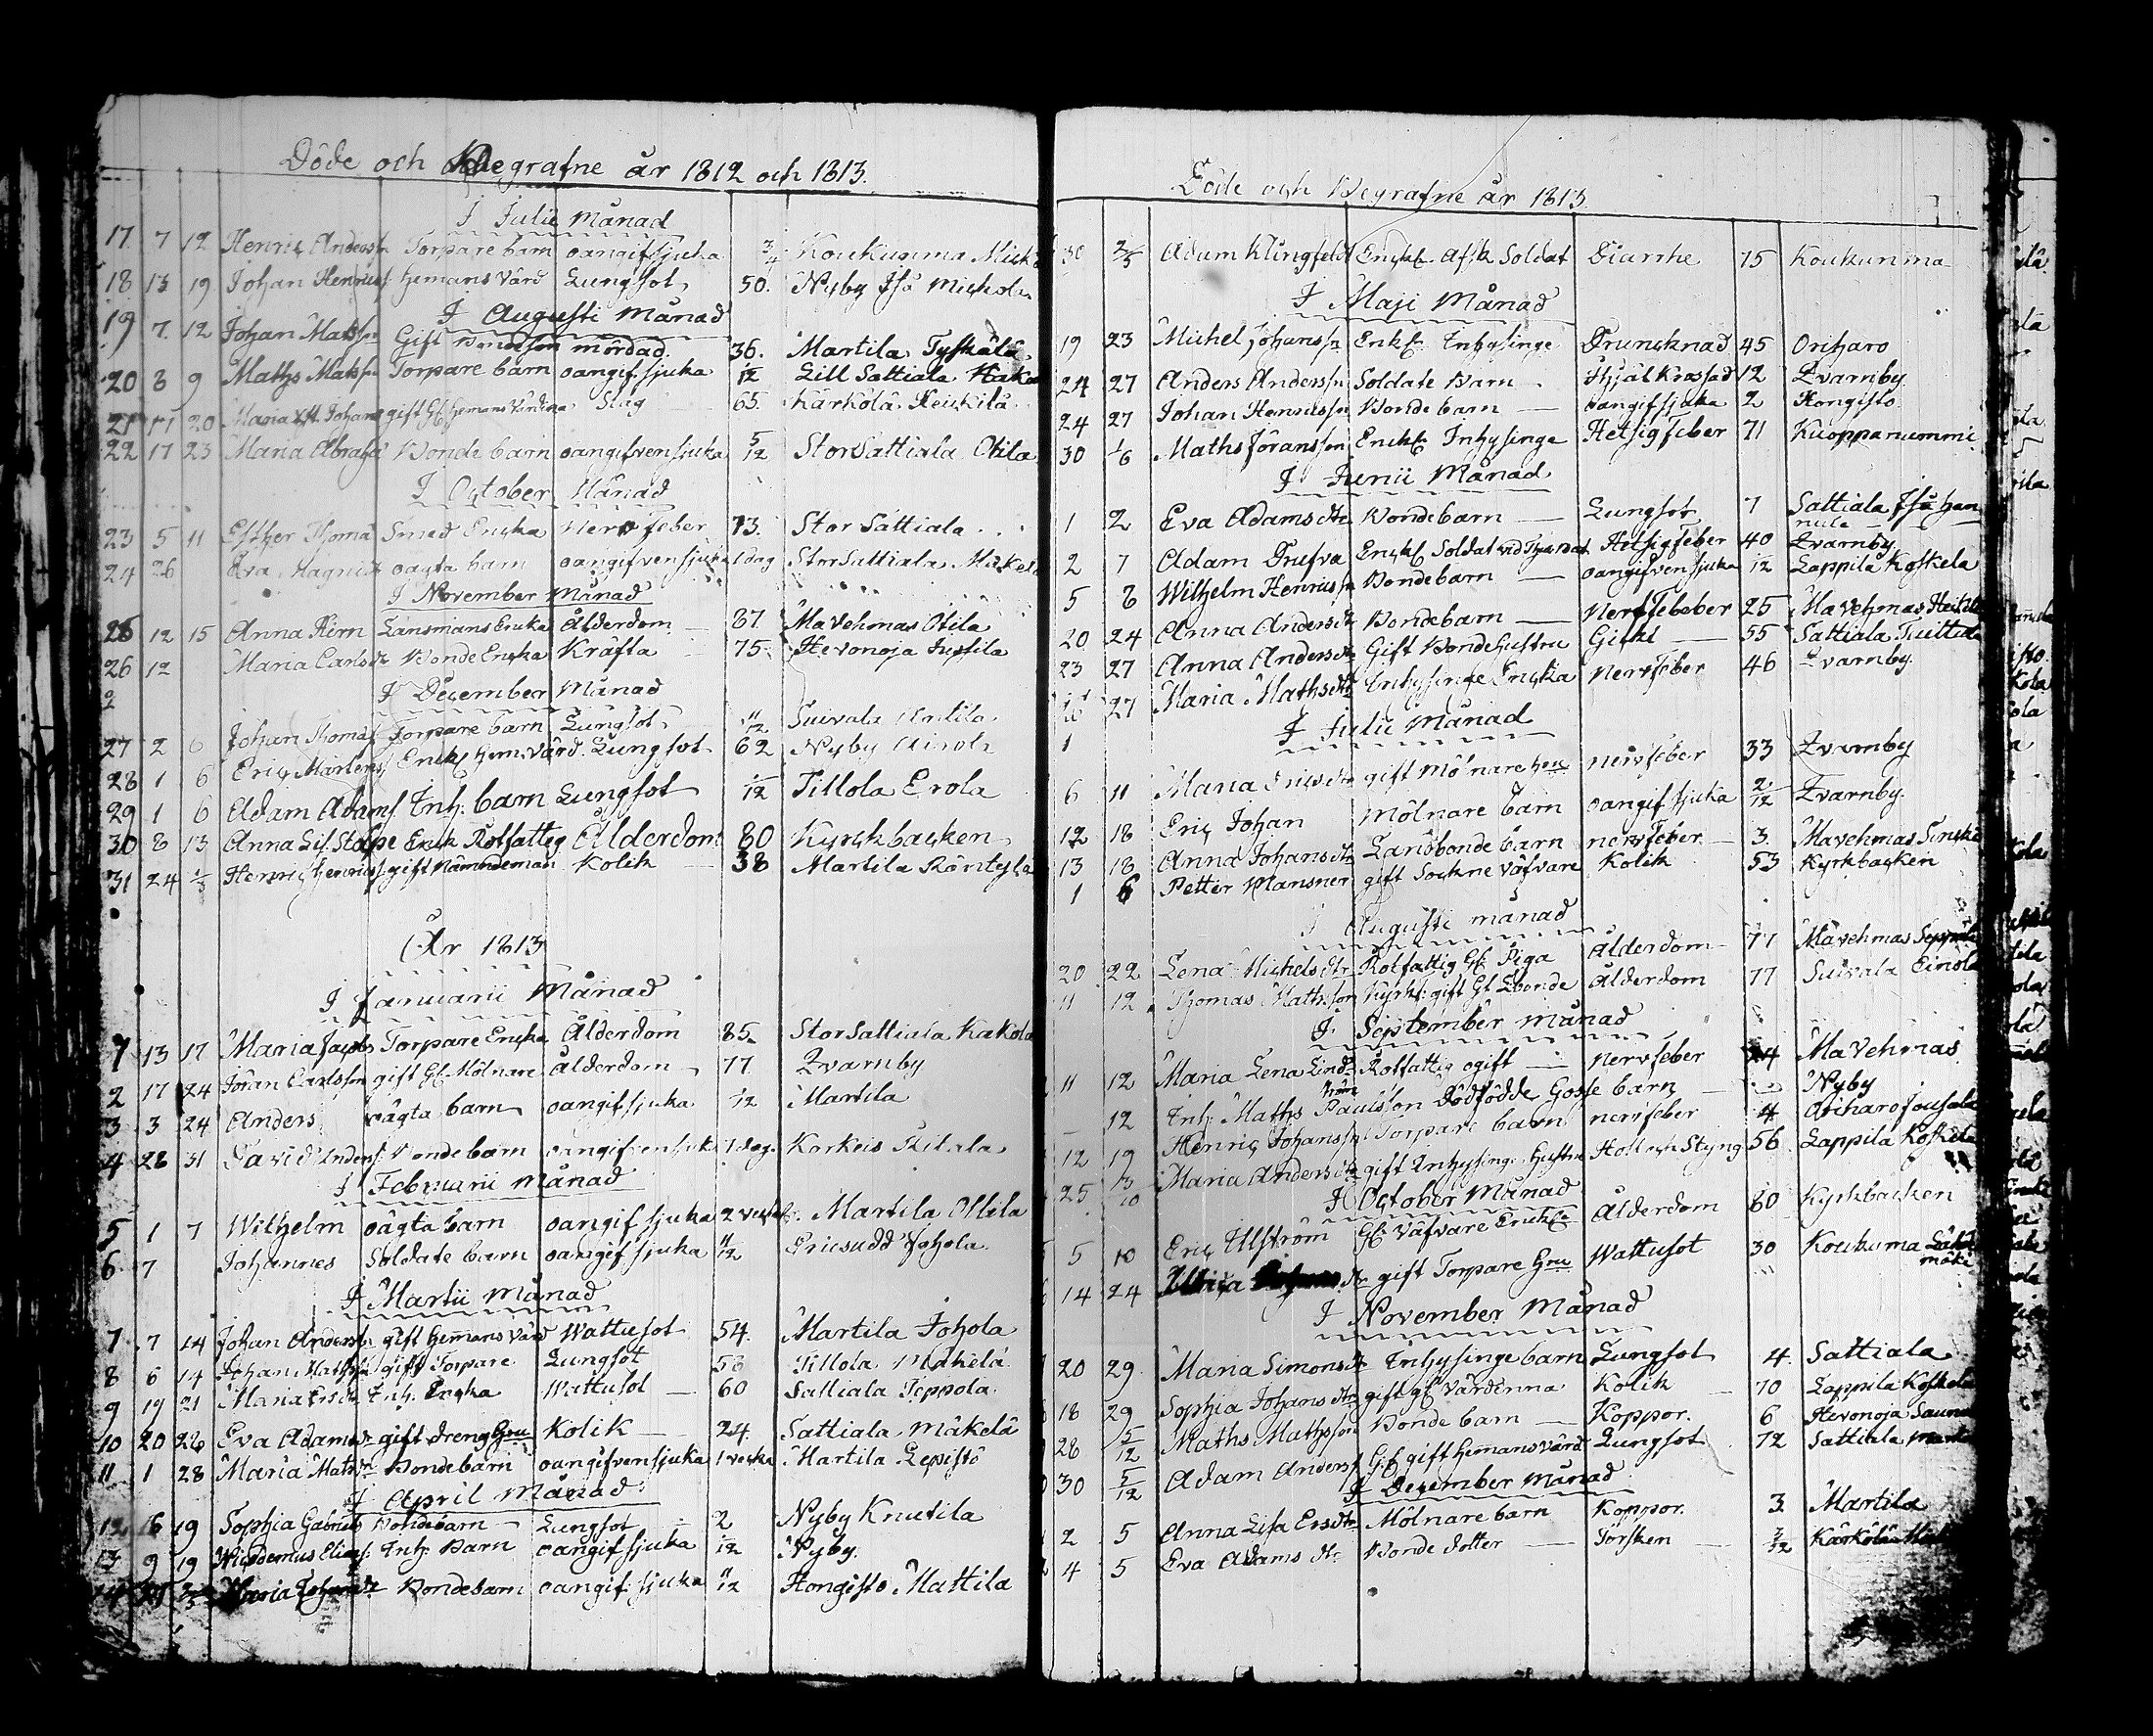 Döde och Begrafne år 1812 och 1813.
I Julii Månad
17 7 12 Henric Anderss: Torpare barn oangif sjuka 3/4 Koukunma
18 13 19 Johan Henriss: Hemans Värd Lungsot 50. Nyby Iså Mickola
I Augusti Månad
19 7 12 Johan Matss: Gift Bondeson mördad. 36. Martila Tyskälä
20 8 9 Maths Matss: Torpare barn oangif. sjuka 1/12 Lill Sattiala
21 17 20 Maria Johans gift Gl: Hemans Värdina Slag 65. Kärkölä Heickilä
22 17 23 Maria Abrahs Bonde barn oangifven sjuka 5/12 Stor Sattiala Otila
I October Månad
23 5 11 Esther Thoma Smed Encka Nervfeber 73. Stor Sattiala
24 26 Eva Magnid: oägta barn oangifven sjuka 1 dag Stor Sattiala Mäkelä
I November Månad
25 12 15 Anna Kern Länsmans Encka Ålderdom 87. Mavehmas Otila
26 12 Maria Carlsdr Bonde Encka Kräfta 75. Hevonoja Jussila
2
I December Månad
27 2 6 Johan Thomas: Torpare barn Lungsot 11/12 Suivala Antila
28 1 6 Eric Mårtenss: Enckl Hem. Värd. Lungsot 62 Nyby Ainola
29 1 6 Adam Adams: Inh. barn Lungsot 1/12 Tillola Erola
30 8 13 Anna Lis. Stolpe Enck Rotfattig Ålderdom 80 Kyrckbacken
31 24 1/3 Henric Henriss: gift Nämndeman Kolik 38 Martila Räntylä
År 1813
I Januarii Månad
1 13 17 Maria Jacobs Torpare Encka Ålderdom 85. Stor Sattiala Kakola
2 17 24 Jöran Carlsson gift Gl. Mölnare Ålderdom 77. Kvarnby
3 3 24 Anders oägta barn oangif sjuka 1/12 Martila
4 28 31 David Anderss: Bonde barn oangifven sjuka 1 dag. Korkeis Skitala
I Februarii Månad
5 1 7 Wilhelm oägta barn oangif sjuka 2 veckor. Martila Ollila
6 7 Johannes Soldate barn oangif sjuka 11/12 Ericsudd Johola
I Martii Månad
7 7 14 Johan Anderss: gift Hemans Värd Wattusot 54. Martila Johola
8 6 14 Johan Mathss: gift Torpare Lungsot 58 Tillola Mäkelä
9 19 21 Maria Ersdr Inh. Encka Wattusot 60 Sattiala Teppola
10 20 28 Eva Adamsdr gift dreng Hru Kolik 24. Sattiala Mäkelä
11 1 28 Maria Matsdr Bonde barn oangifven sjuka 1 vecka Martila Lepistö
I April Månad
12 16 19 Sophia Gabriels Bondebarn Lungsot 2 Nyby Knutila
13 9 19 Nicodemus Eliass: Inh. Barn oangif sjuka 1/12 Nyby.
14 Maria Johansdr Bondebarn oangif. sjuka 11/12 Hongisto Mattila
Döde och Begrafne år 1813.
30 2/5 Adam Klingfeldt Enckl. Afsk Soldat Diarrhe 75 Koukunma
I Maji Månad
19 23 Michel Johanssn Enkl. Inhysinge Druncknad 45 Oriharo
24 27 Anders Anderssn Soldate Barn Ihjäl Krossad 12 Kvarnby.
24 27 Johan Henricssn Bonde barn oangif sjuka 2 Hongisto.
30 1/6 Maths Jöransson Enckl Inhysinge Hetsig feber 71 Kuoppanummi
I Junii Månad
1 2 Eva Adamsdtr Bonde barn Lungsot 7 Sattiala Iså Han
nula
2 7 Adam Drufva Enckl Soldat vid Hetsig Feber 40 Kvarnby
5 8 Wilhelm Henricssn Bonde barn oangifven sjuka 1/12 Lappila Koskela
20 24 Anna Andersdtr Bonde barn Nervfebeber 25 Mavehmas Heikilä
23 27 Anna Andersdtr Gift Bonde Hustru Gickt 55 Sattiala
27 Maria Mathsdtr Inhysinge Encka Nervfeber 46 Kvarnby.
I Julii Månad
1
6 11 Maria Ericsdtr gift Mölnare Hru nervfeber 33 Kvarnby
12 18 Eric Johan Mölnare barn oangif sjuka 2/12 Kvarnby.
13 18 Anna Johansdtr Landbonde barn nervfeber 3. Mavehmas
1 6 Petter Mansner gift Sockne Väfvare Kolik 53 Kyrkbacken
I Augusti månad
20 22 Lena Michelsdtr Rotfattig Gl. Piga Ålderdom 77 Mävehmas
11 12 Thomas Mathsson Kyrks: gift Gl. Lbonde Ålderdom 77 Suivala Einola
I September månad
11 12 Maria Lena Lind-
ström Rotfattig ogift Nervfeber 24 Mavehmas
12 Inh. Maths Paulsson Dödfödde Gosse barn Nyby
12 19 Henric Johanssn Torpare barn nervfeber 4 Oriharo Jousala
25 3/10 Maria Andersdtr gift Inhysings Hustru Håll och Styng 56 Lappila Koskela
I October Månad
5 10 Eric Ulström Gl. Väfvare Enckl Ålderdom 80 Kyrkbacken
14 24 gift Torpare Hru Wattusot 30 Koukuma
mäki
I November Månad
20 29 Maria Simonsdr Inhysinge barn Lungsot 4. Sattiala
18 29 Sophia Johansdtr gift gl Värdinna Kolik 70 Lappila Koskela
28 5/12 Maths Mathsson Bonde barn Koppor. 6 Hevonoja
30 5/12 Adam Anderss Gl. gift Hemans Värd Lungsot 72 Sattiala
I December Månad
2 5 Anna Lisa Ersdtr Mölnare barn Koppor. 3 Martila
4 5 Eva Adams dtr Bonde dotter Torsken 3/12 Kärkölä